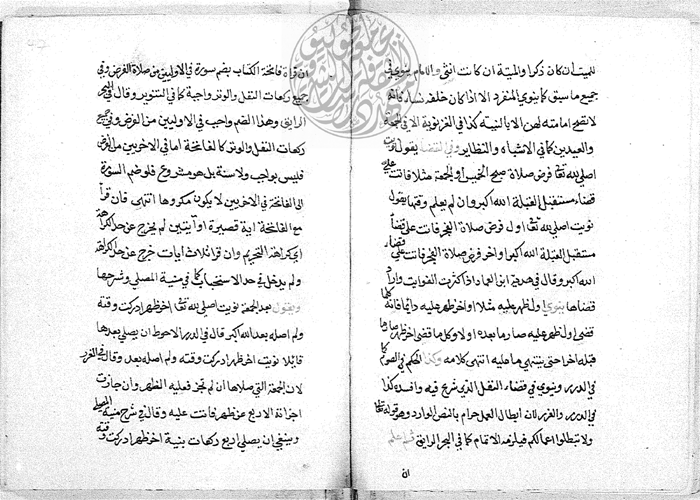 للميت ان كان ذكرا والميتة ان كانت انثى والامام ينوي في
جميع ما سبق كما ينوي المنفرد الا اذا كان خلفه نساء فانه
لا تصح امامته لهن الا بالنية كذا في الغزنوية الا في الجمعة
والعيدين كما في الاشباه والنظائر وفي القضاء يقول نويت
اصلي لله تعالى فرض صلاة صبح الخميس او الجمعة مثلا فاتت علي
قضاء مستقبل القبلة الله اكبر وان لم يعلم وقتها يقول
نويت اصلي لله تعالى اول فرض صلاة الفجر فاتت علي قضاء
مستقبل القبلة الله اكبر او اخر فرض صلاة الفجر فاتت علي قضاء
الله اكبر وقال في هدية ابن العماد اذا كثرت الفوايت واراد
قضاها ينوي اول ظهر عليه مثلا او اخر ظهر عليه دايما فانه كلما
قضى اول ظهر عليه صار ما بعده اولا وكل ما قضى اخر ظهر صار ما
قبله اخرا حتى ينتهي ما عليه انتهى كلامه وكذا الحكم في الصوم كما
في الدرر وينوي في قضاء النفل الذي شرع فيه وافسده كذا
في الدرر والغرر لان ابطال العمل حرام بالنص الوارد وهو قوله تعالى
ولا تبطلوا اعمالكم فيلزمه الاتمام كما في البحر الرايق
ان
ان قراة فاتحة الكتاب بضم سورة في الاوليين من صلاة الفرض وفي
جميع ركعات النفل والوتر واجبة كما في التنوير وقال في البحر
الرايق وهذا الضم واجب في الاوليين من الفرض وفي جميع
ركعات النفل والوتر كالفاتحة اما في الاخريين من الفرض
فليس بواجب ولا سنة بل هو مشروع فلو ضم السورة
الى الفاتحة في الاخريين لا يكون مكروها انتهى فان قرا
مع الفاتحة اية قصيرة او ايتين لم يخرج عن حد الكراهة
اي كراهة التحريم وان قرا ثلاث ايات خرج عن حد الكراهة
ولم يدخل في حد الاستحباب كما في منية المصلي وشرحها
ويقول بعد الجمعة نويت اصلي لله تعالى اخر ظهر ادركت وقته
ولم اصله بعد الله اكبر قال في الدرر الاحوط ان يصلي بعدها
قايلا نويت اخر ظهر ادركت وقته ولم اصله بعد وقال في الغرر
لان الجمعة التي صلاها ان لم تجز فعليه الظهر وان جازت
اجزاته الاربع عن ظهر فاتت عليه وقال في شرح منية المصلي
وينبغي ان يصلي اربع ركعات بنية اخر ظهر ادركت وقته